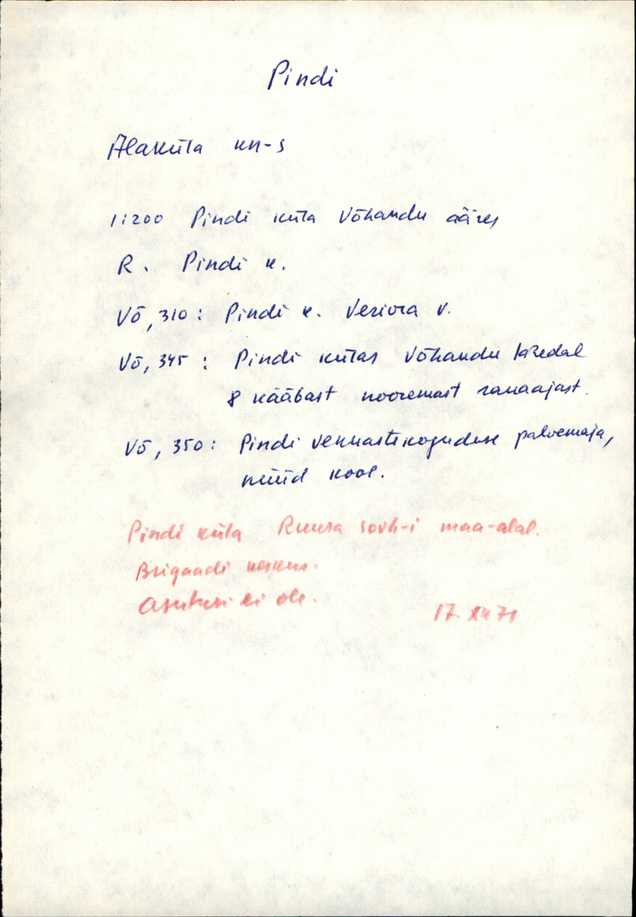 Pindi
Alaküla kn-s
1:200 Pindi küla Võhandu ääres
R. Pindi k.
Võ, 310: Pindi k. Veriora v.
Võ, 345: Pindi külas Võhandu kaldal
8 kääbast nooremast rauaajast.
Võ, 350: Pindi vennastekoguduse palvemaja,
nüüd kool.
Pindi küla Ruusa sovh-i maa-alal.
Brigaadi keskus.
Asutusi ei ole.
17. 71